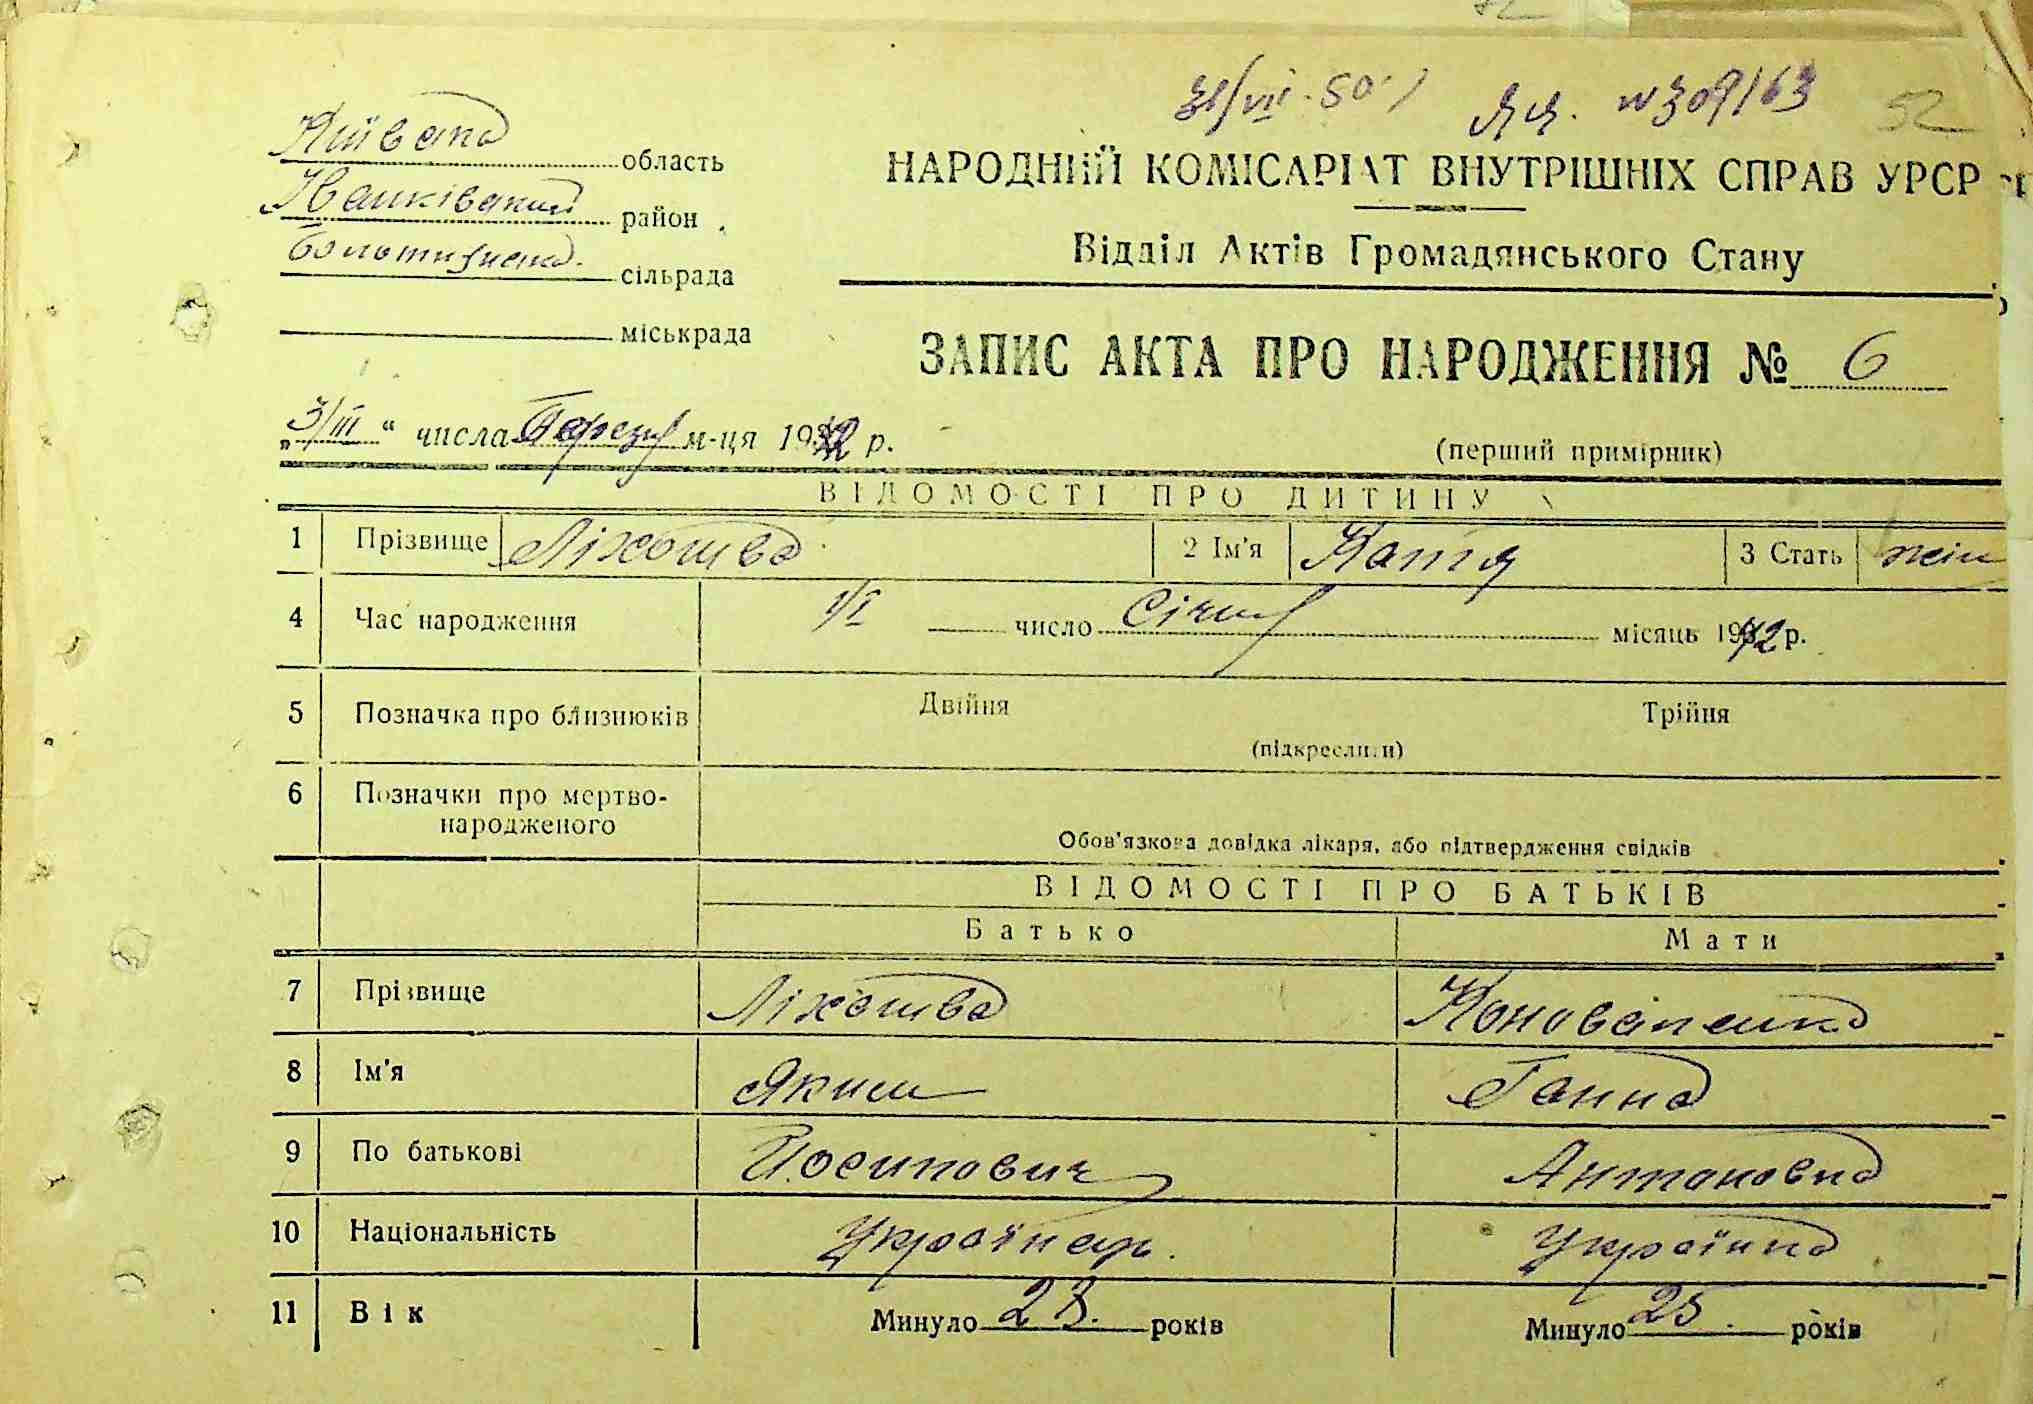 31/VII-50
№309/63
52
Київська область
НАРОДНИЙ КОМІСАРІАТ ВНУТРІШНІХ СПРАВ УРСР
район
Відділ Актів Громадянського Стану
сільрада
міськрада
ЗАПИС АКТА ПРО НАРОДЖЕННЯ № 6
„3/III“ числа Березня м-ця 1942 р.
(перший примірник)
ВІДОМОСТІ ПРО ДИТИНУ
1 Прізвище Ліхошва 2 Ім'я Катя 3 Стать жін
4 Час народження 1/I число Січня місяць 1942 р.
5 Позначка про близнюків Двійня Трійня
(підкреслити)
6 Позначки про мертво-
народженого
Обов'язкова довідка лікаря, або підтвердження свідків
ВІДОМОСТІ ПРО БАТЬКІВ
Батько Мати
7 Прізвище Ліхошва Коноваленко
8 Ім'я Яким Ганна
9 По батькові Йосипович Антоновна
10 Національність Українець. Українка
11 Вік Минуло 23. років Минуло 25. років